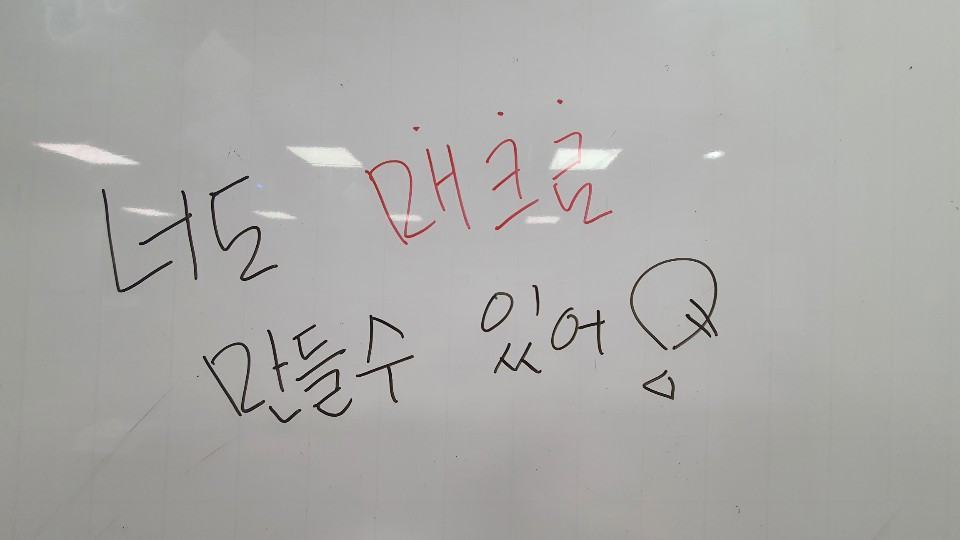 너도 매크롬
만들수 있어